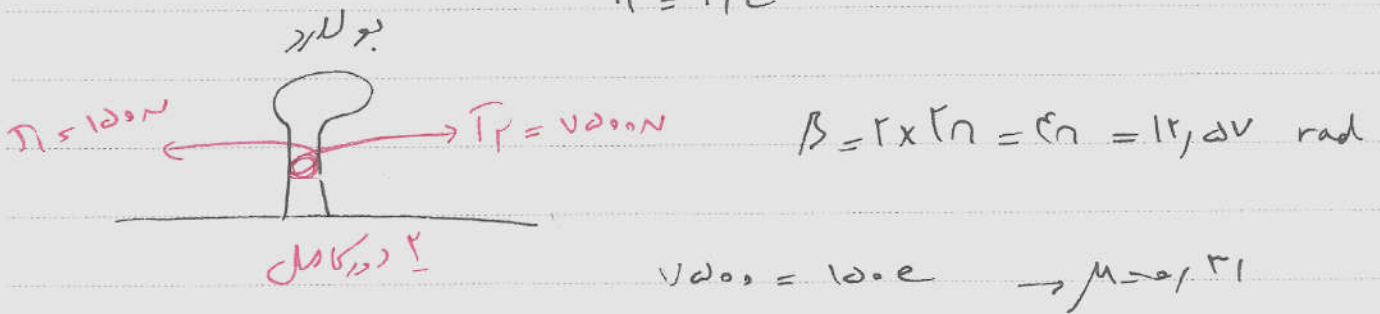 بولارد
T۱ = ۱۵۰N
T۲ = ۷۵۰۰N
β = ۲ × ۲π = ۴π = ۱۲,۵۷ rad
۲ دور کامل
۷۵۰۰ = ۱۵۰e → μ = ۰,۳۱